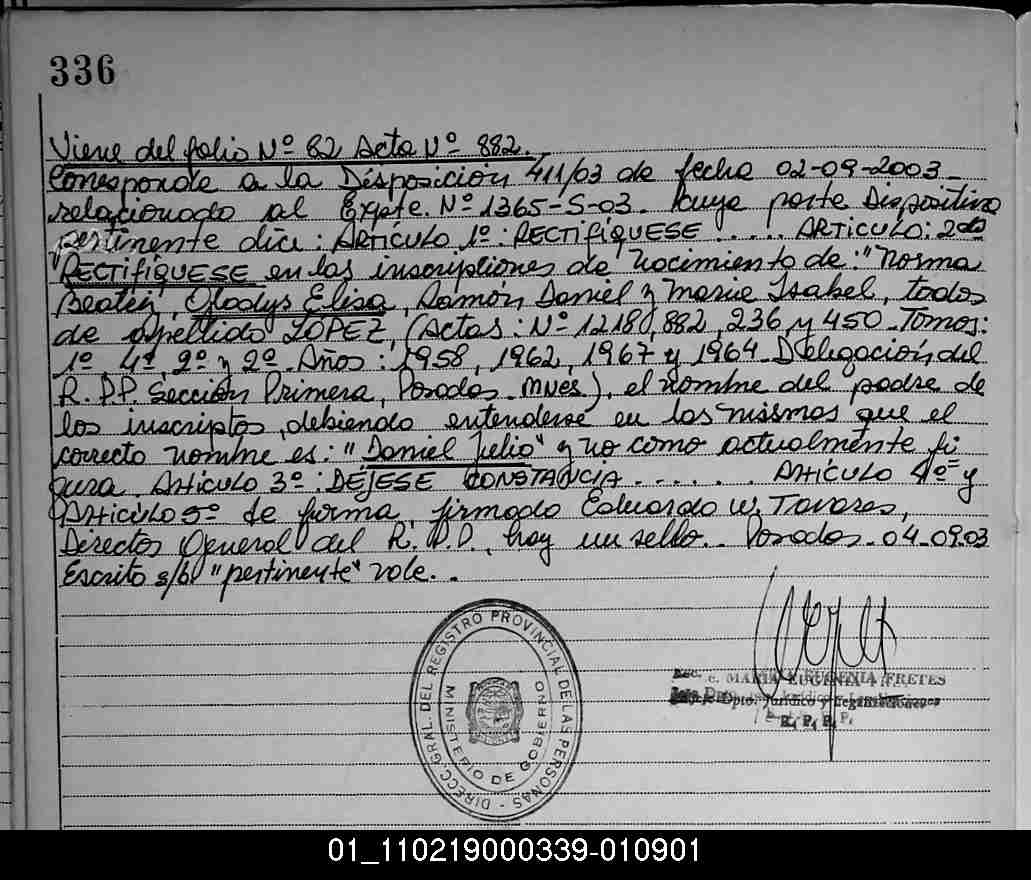 336
Viene del folio Nº 82 Acta Nº 882.
Corresponde a la Disposición 411/03 de fecha 02-09-2003_
relacionado al Expte. Nº 1365-S-03. Cuya parte Dispositiva
pertinente dice: ARTÍCULO 1º: RECTIFÍQUESE ..... ARTICULO: 2do
RECTIFÍQUESE en las inscripciones de nacimiento de: "Norma
Beatriz, Gladys Elisa, Ramón Daniel y María Isabel, todos
de apellido LOPEZ, (Actas: Nº 1218, 882, 236 y 450_Tomos:
1º 4º, 2º y 2º_Años: 1958, 1962, 1967 y 1964_Delegación del
R.P.P. Sección Primera, Posadas. Mnes), el nombre del padre de
los inscriptos, debiendo entenderse en los mismos que el
correcto nombre es: "Daniel Julio" y no como actualmente fi
gura. Artículo 3º: DÉJESE CONSTANCIA ...... ARTÍCULO 4º= y
Artículo 5º de forma, firmado Eduardo W. Tavares,
Director General del R.P.P., hay un sello.. Posadas_04.09.03
Escrito s/b "pertinente" vale..
DIRECC. GRAL. DEL REGISTRO PROVINCIAL DE LAS PERSONAS -
MINISTERIO DE GOBIERNO
MARIA EUGENIA FRETES
Dpto. Jurídico y Legalizaciones
R. P. P.
01_110219000339-010901